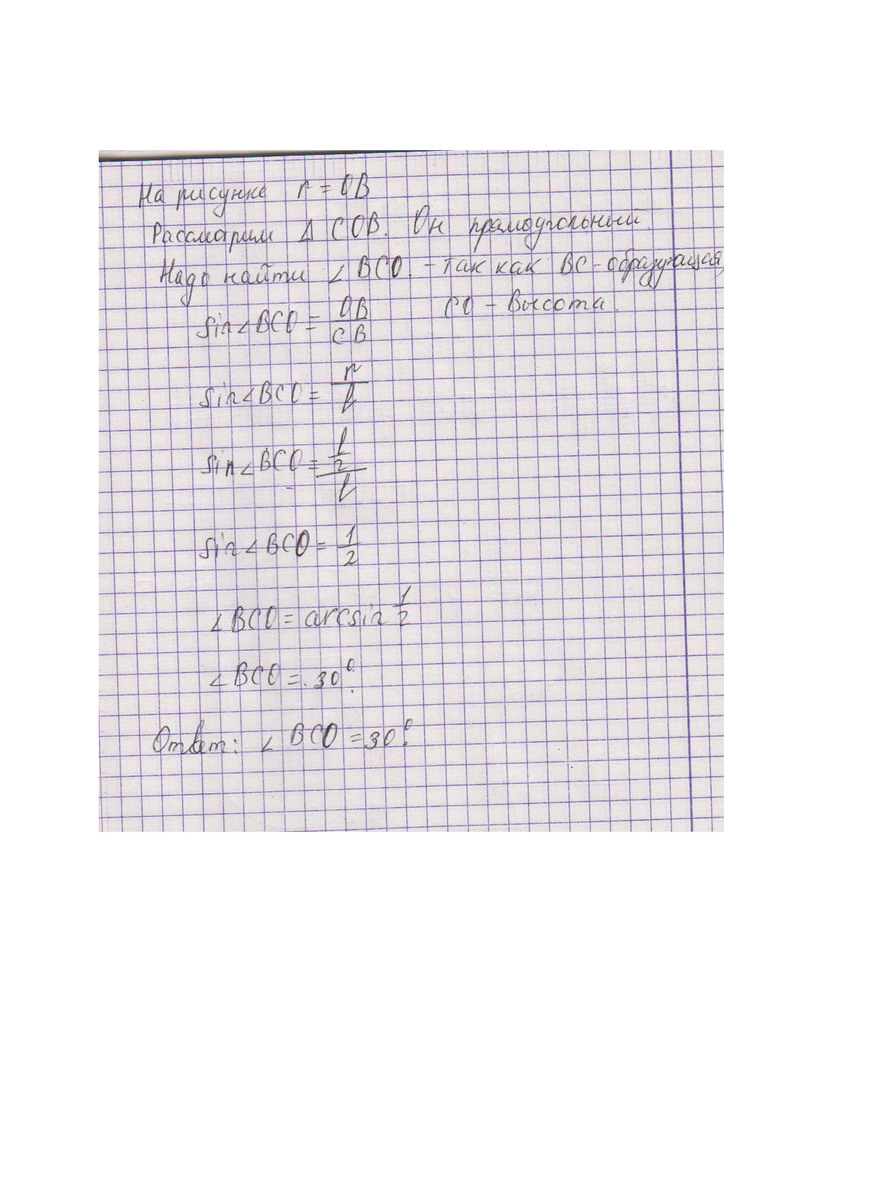 На рисунке r = OB
Рассмотрим Δ COB. Он прямоугольный.
Надо найти ∠BCO. - так как BC - образующая,
CO - высота.
sin∠BCO = OB/CB
sin∠BCO = r/l
sin∠BCO = (l/2)/l
sin∠BCO = 1/2
∠BCO = arcsin 1/2
∠BCO = 30°.
Ответ: ∠ BCO = 30°.